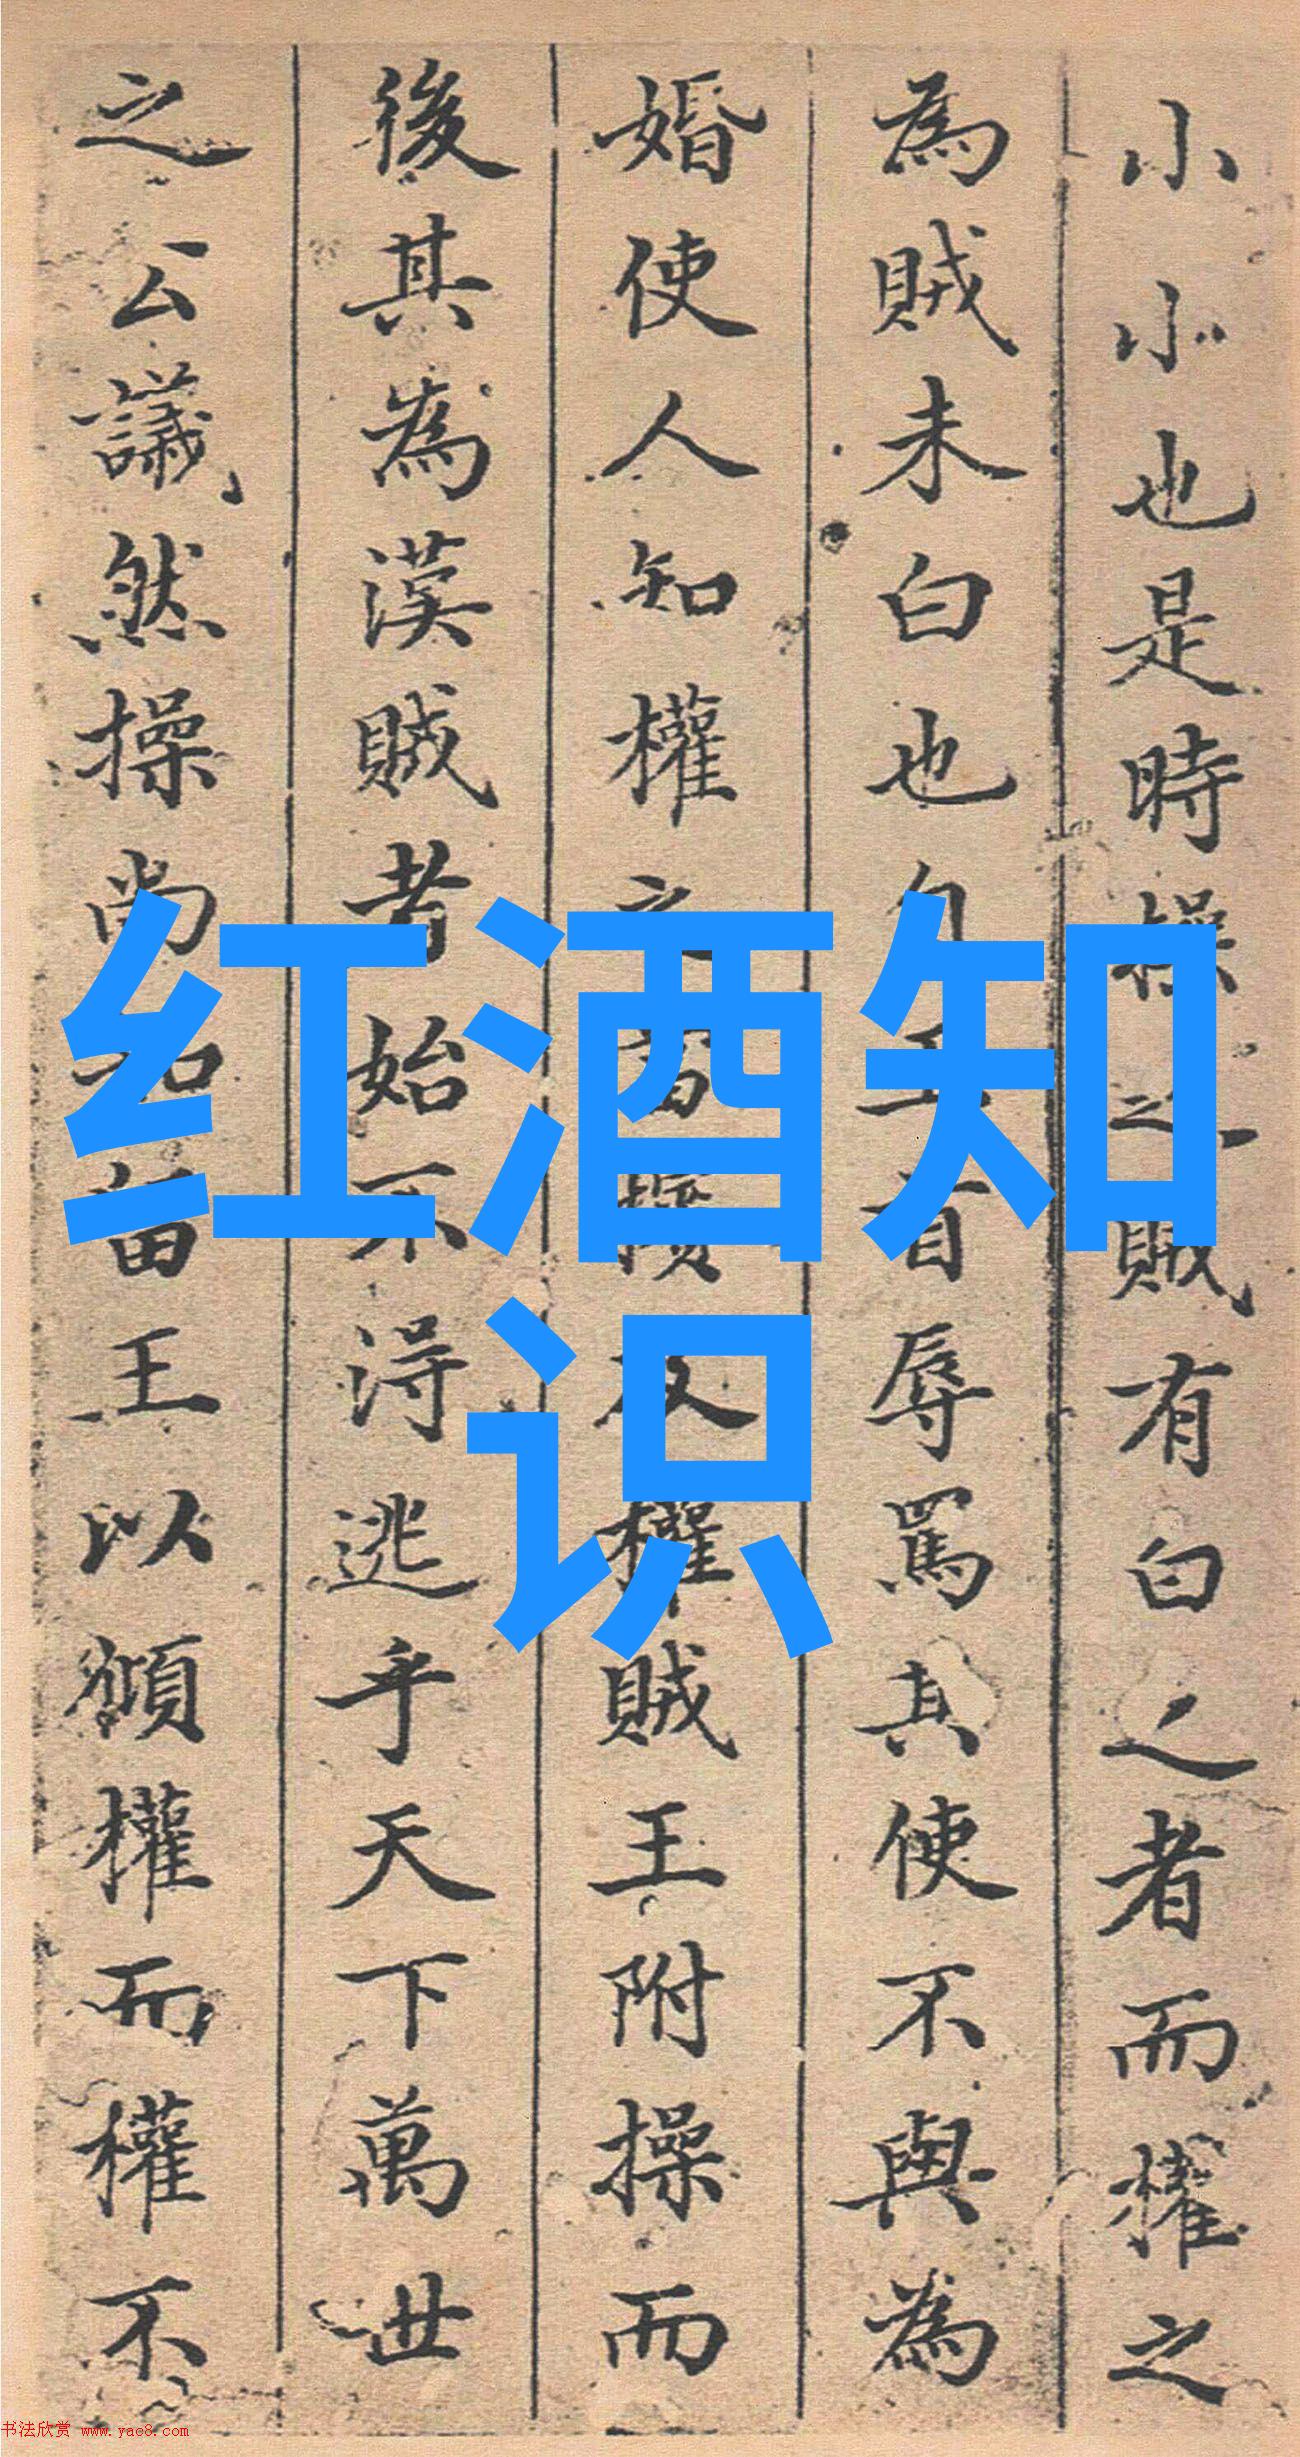 红酒知
识
小小也是時操之賊有白之者而權之
為賊未白也首辱罵其使不與為
婚使人知權之權賊王附操而
後其為漢賊者始不得逃乎天下萬世
之公議然操尚王以權而權不
书法欣赏 www.yac8.com